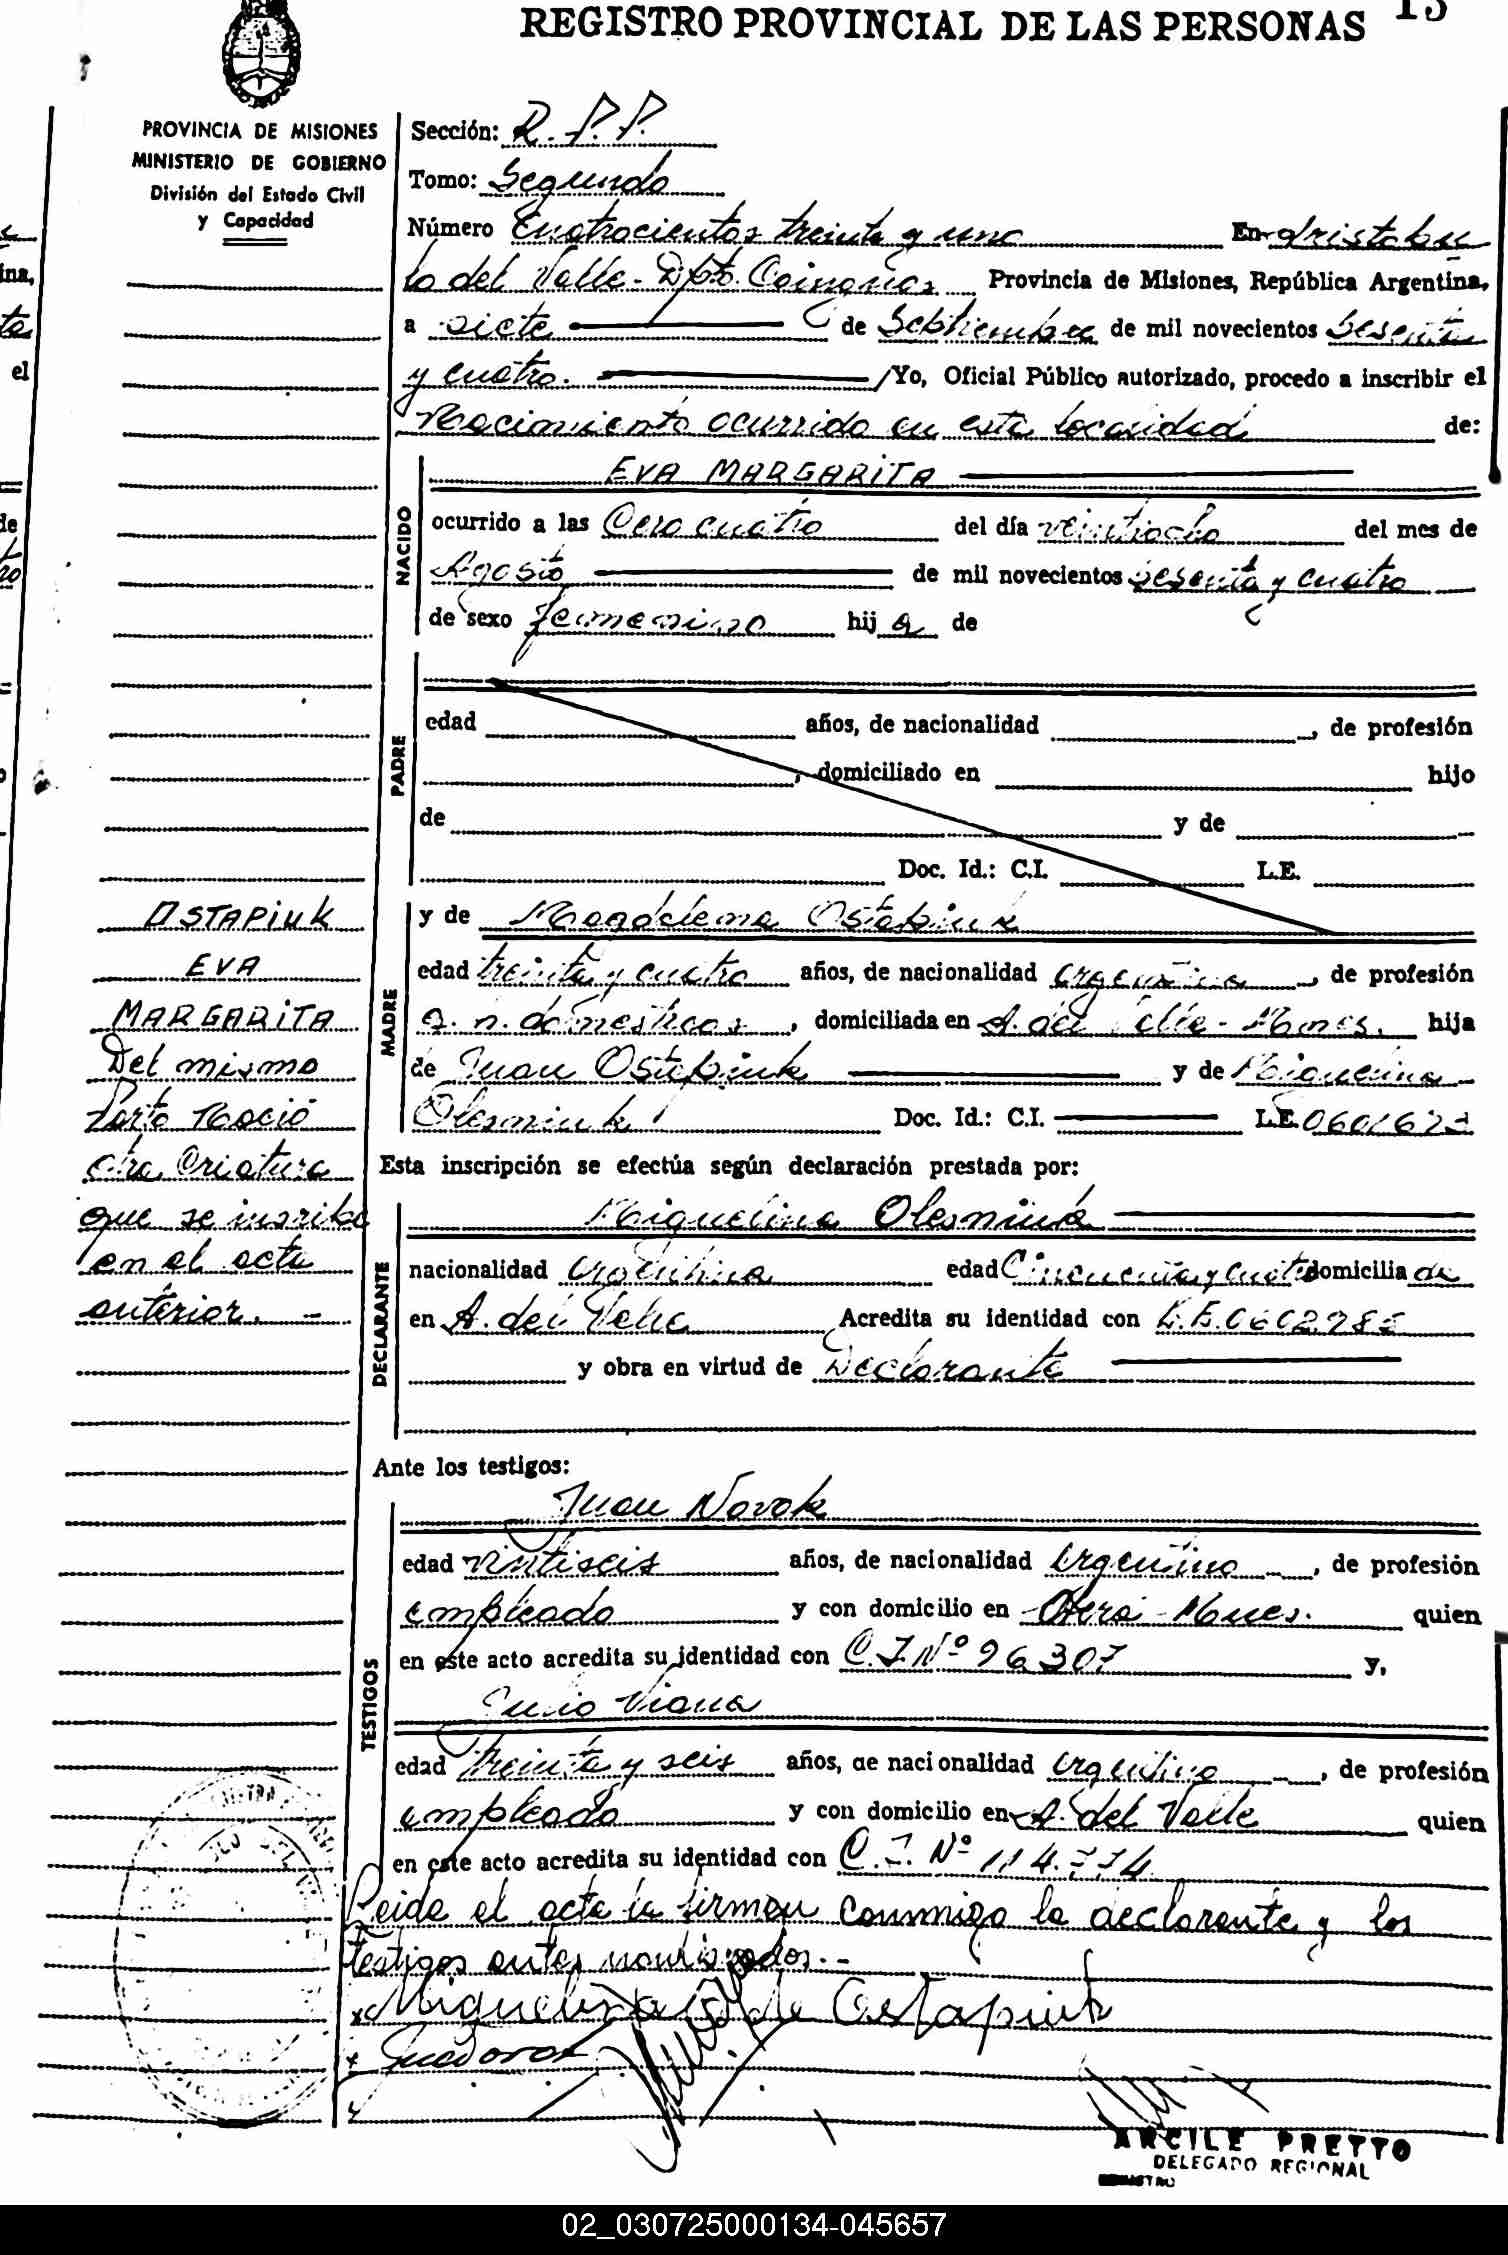 REGISTRO PROVINCIAL DE LAS PERSONAS
PROVINCIA DE MISIONES
MINISTERIO DE GOBIERNO
División del Estado Civil
y Capacidad
Sección: R.P.P.
Tomo: Segundo
Número Cuatrocientos treinta y uno En Aristobu
lo del Valle - Dpto. Cainguas Provincia de Misiones, República Argentina,
a siete de Septiembre de mil novecientos sesenta
y cuatro. /Yo, Oficial Público autorizado, procedo a inscribir el
Nacimiento ocurrido en esta localidad de:
NACIDO
EVA MARGARITA
ocurrido a las Cero cuatro del día veintiocho del mes de
Agosto de mil novecientos sesenta y cuatro
de sexo femenino hija de
PADRE
edad años, de nacionalidad , de profesión
, domiciliado en hijo
de y de
Doc. Id.: C.I. L.E.
MADRE
y de Magdalena Ostapiuk
edad treinta y cuatro años, de nacionalidad argentina, de profesión
q. n. domesticos, domiciliada en A. del Valle - Mnes. hija
de Juan Ostapiuk y de Miguelina
Olesniuk Doc. Id.: C.I. L.E.
OSTAPIUK
EVA
MARGARITA
Del mismo
Parto Nació
otra Criatura
que se inscribe
en el acta
anterior. -
Esta inscripción se efectúa según declaración prestada por:
DECLARANTE
Miguelina Olesniuk
nacionalidad argentina edad Cincuenta y cuatro domiciliada
en A. del Valle Acredita su identidad con L.E.
y obra en virtud de Declarante
Ante los testigos:
TESTIGOS
Juan Novak
edad vintiseis años, de nacionalidad argentino, de profesión
empleado y con domicilio en Obera - Mnes. quien
en este acto acredita su identidad con C.I. Nº 96.307 y,
Julio Viana
edad treinta y seis años, de nacionalidad argentino, de profesión
empleado y con domicilio en A. del Valle quien
en este acto acredita su identidad con C.I. Nº
Leida el acta la firman conmigo la declarante y los
testigos antes nombrados. -
Miguelina de Ostapiuk
ARCILE PRETTO
DELEGADO REGIONAL
02_030725000134-045657